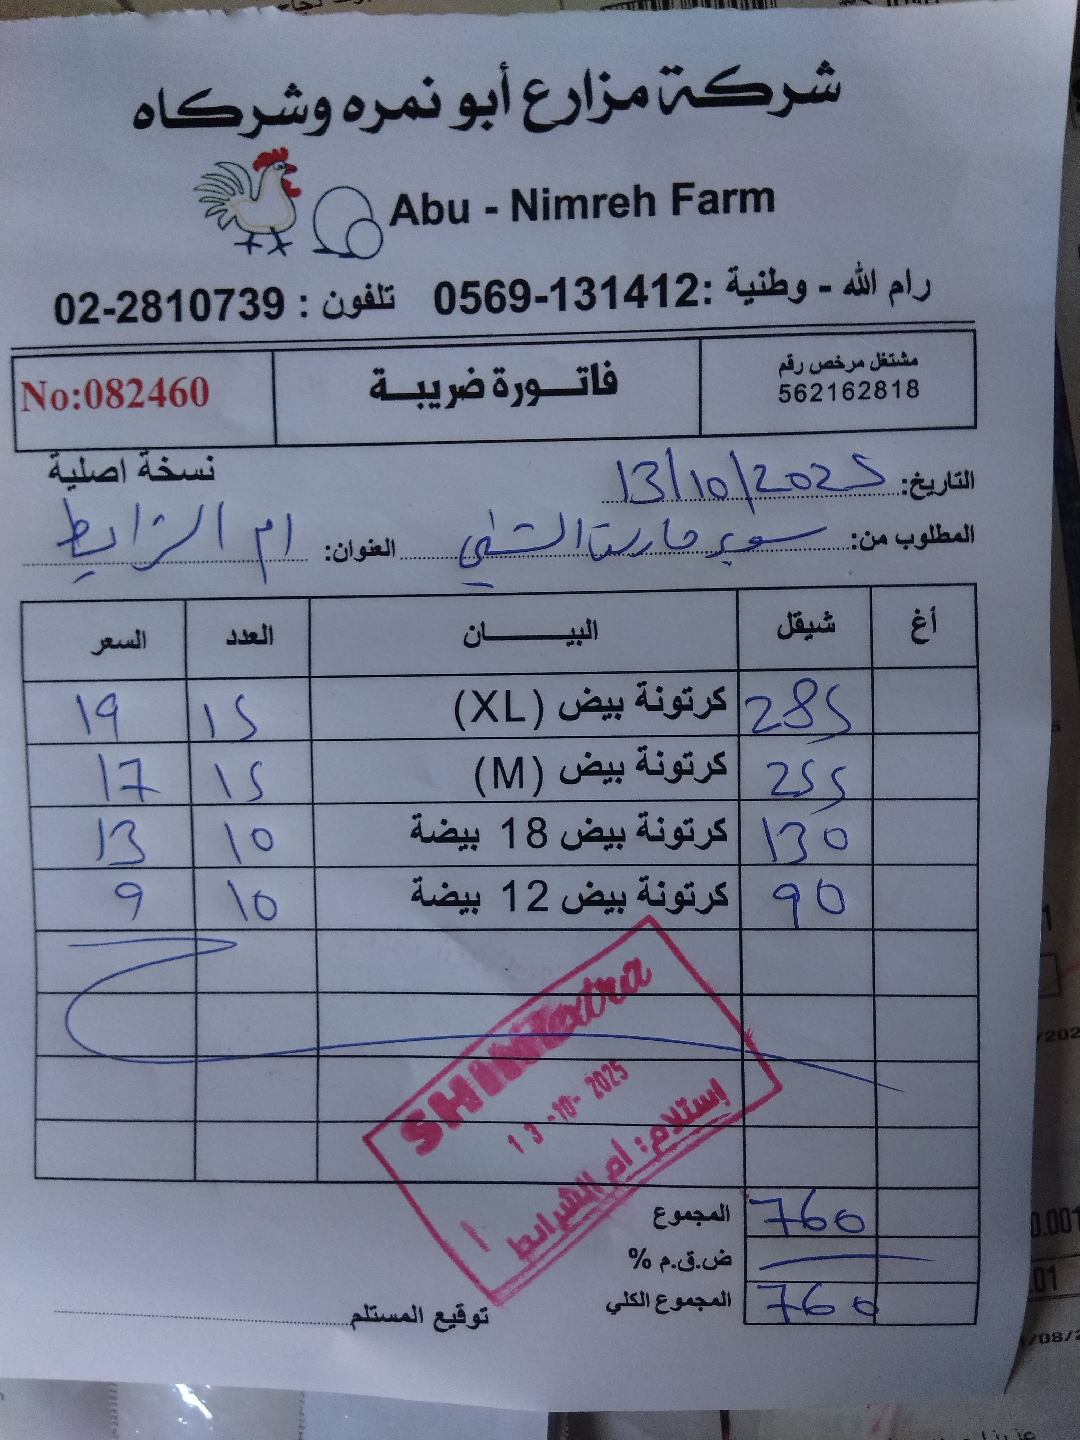 شركة مزارع أبو نمره وشركاه
Abu - Nimreh Farm
رام الله - وطنية : 0569-131412 تلفون : 02-2810739
مشتغل مرخص رقم
562162818
فاتورة ضريبة
No:082460
نسخة اصلية
التاريخ: 13/10/2025
المطلوب من: سوبر مارت الشني العنوان: ام الشرايط
أغ شيقل البيان العدد السعر
285 كرتونة بيض (XL) 15 19
255 كرتونة بيض (M) 15 17
130 كرتونة بيض 18 بيضة 10 13
90 كرتونة بيض 12 بيضة 10 9
SHINI extra
13-10-2025
إستلام: أم الشرايط
المجموع 760
ض.ق.م %
المجموع الكلي 760
توقيع المستلم